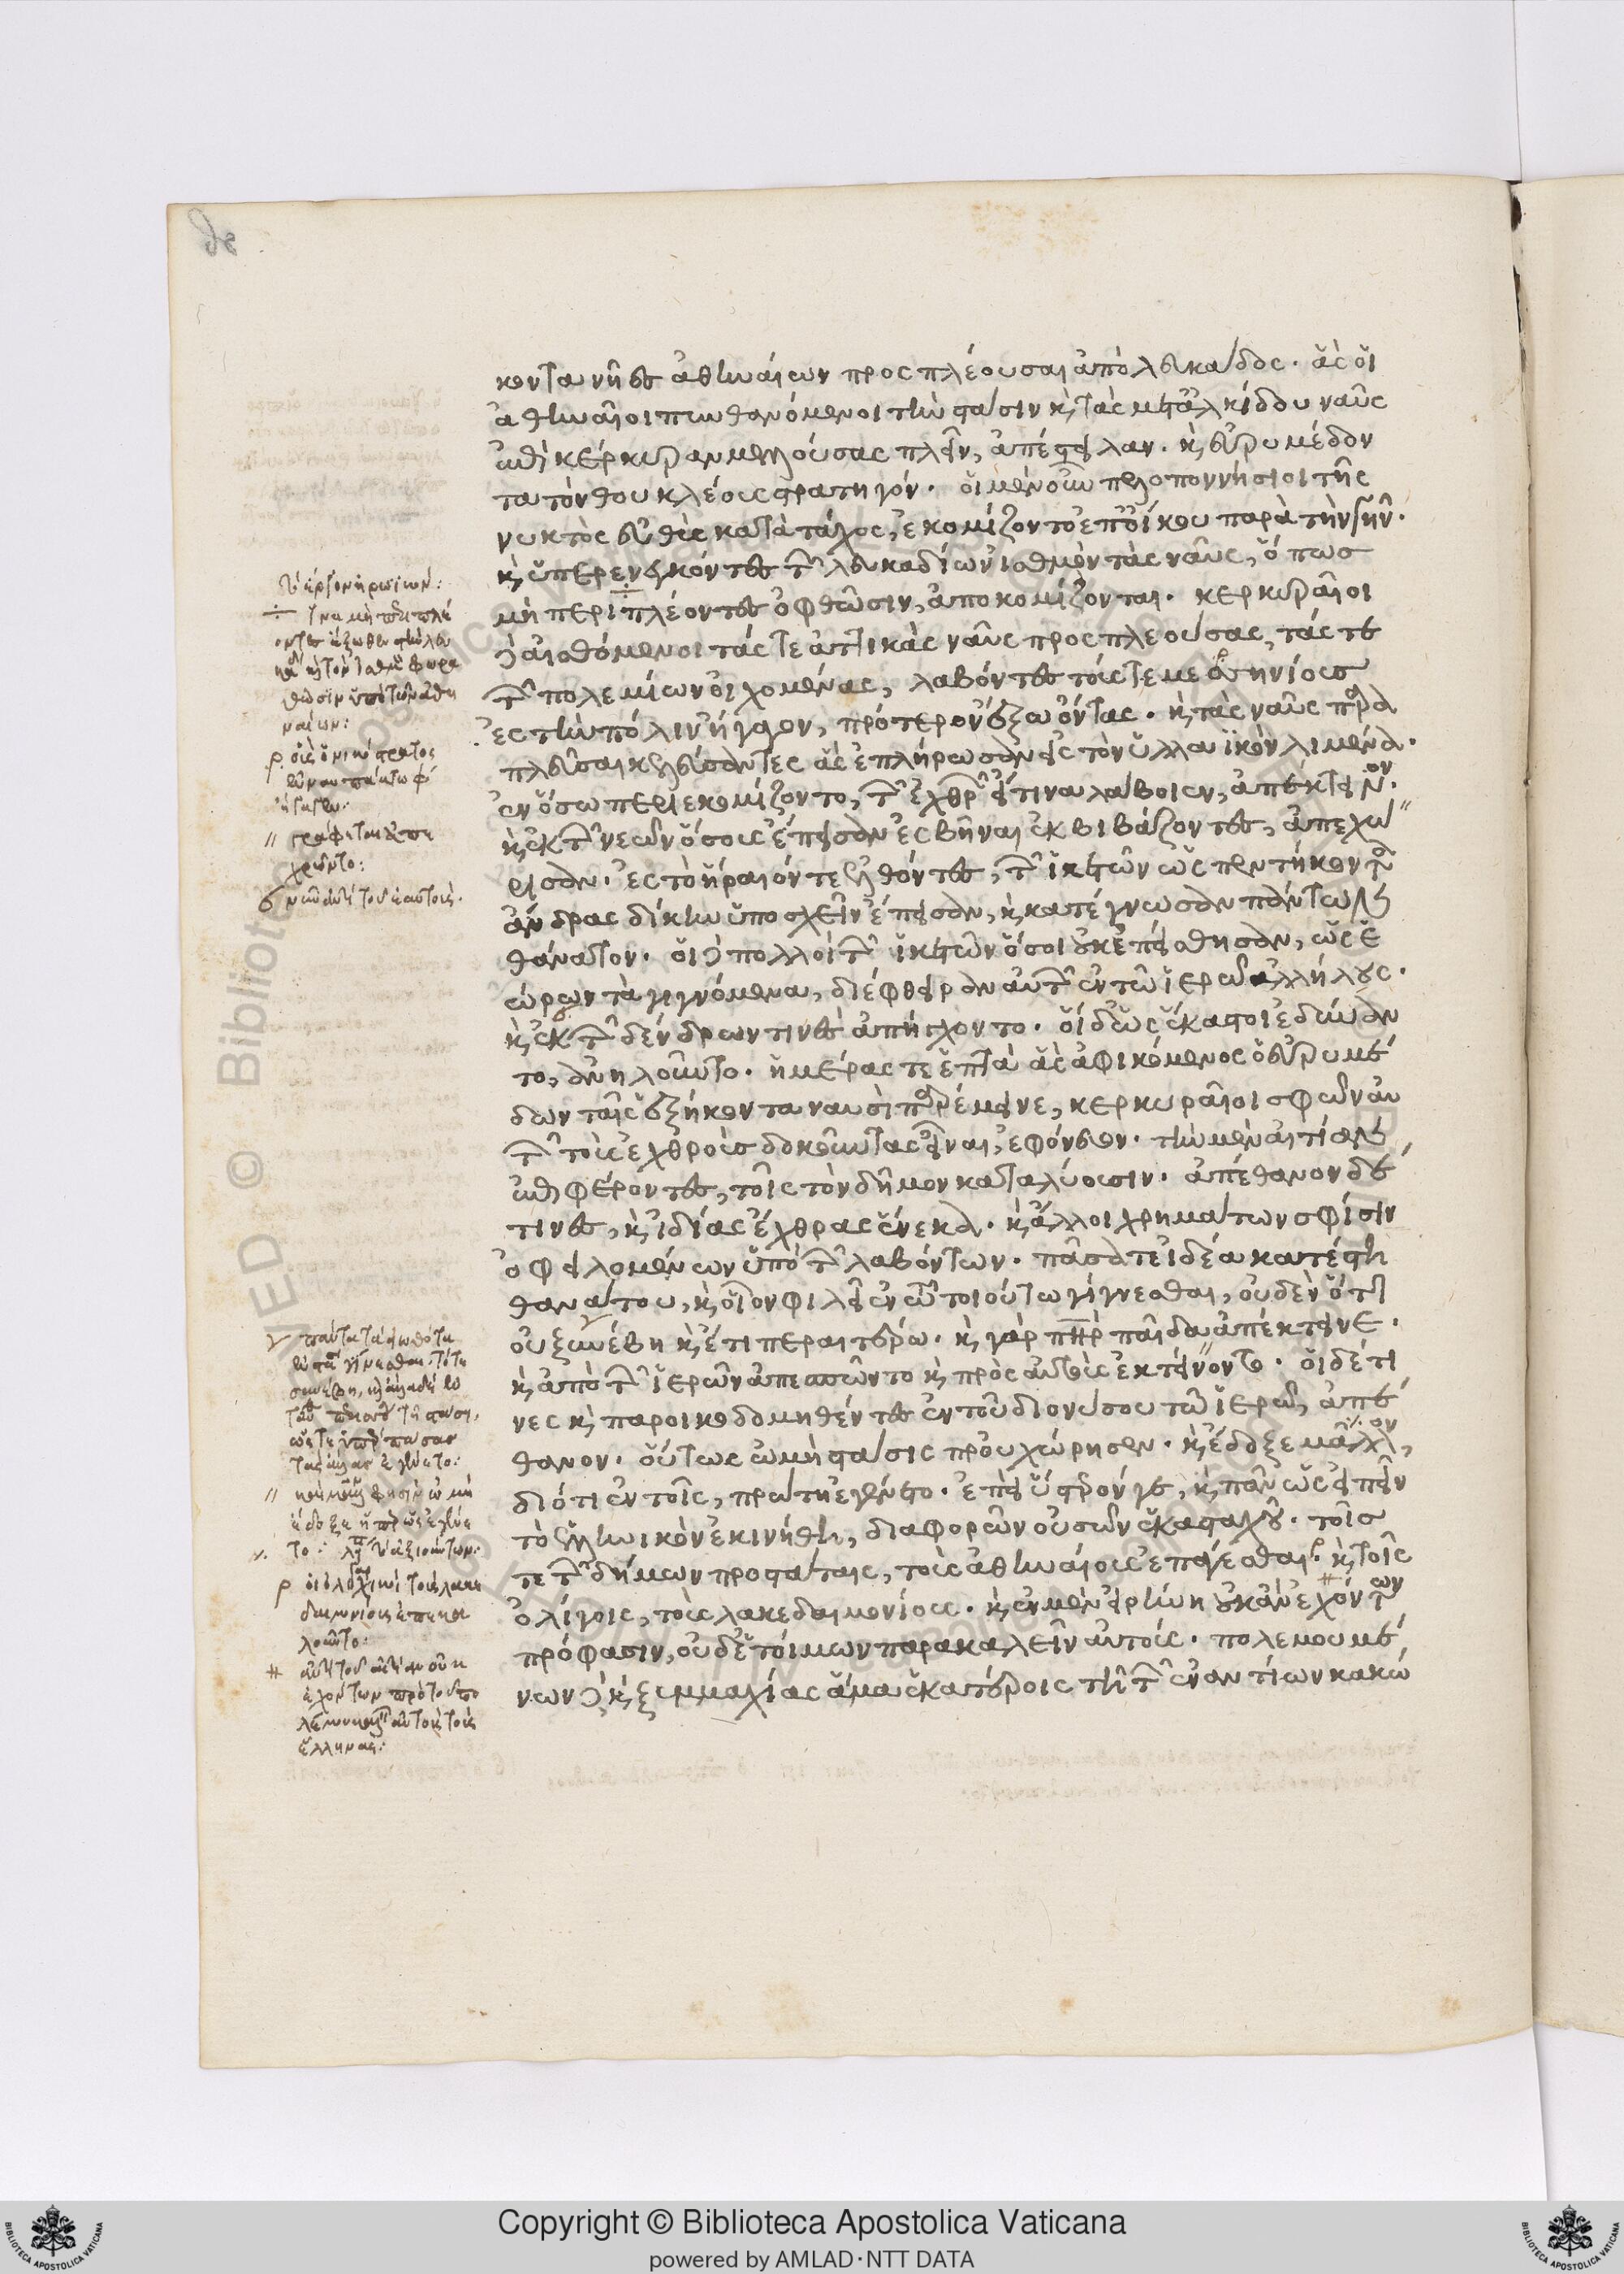 κοντα νῆες ἀθηναίων προσπλέουσαι ἀπὸ λευκάδος. ἃς οἱ
ἀθηναῖοι πυνθανόμενοι τὴν στάσιν κ τὰς μετ' ἀλκίδου ναῦς
ἐπὶ κέρκυραν μελλούσας πλεῖν, ἀπέστειλαν. κ εὐρυμέδον
τα τὸν θουκλέους στρατηγόν. οἱ μὲν οὖν πελοποννήσιοι τῆς
νυκτὸς εὐθὺς κατὰ τάχος, ἐκομίζοντο ἐπ' οἴκου παρὰ τὴν γῆν.
κ ὑπερενεγκόντες τῶν λευκαδίων ἰσθμὸν τὰς ναῦς, ὅπως
μὴ περιπλέοντες ὀφθῶσιν, ἀποκομίζονται. κερκυραῖοι
δὲ αἰσθόμενοι τάς τε ἀττικὰς ναῦς προσπλεούσας, τάς τε
τῶν πολεμίων οἰχομένας, λαβόντες τούς τε μεσσηνίους
ἐς τὴν πόλιν ἤγαγον, πρότερον ἔξω ὄντας. κ τὰς ναῦς περι
πλεῦσαι κελεύσαντες ἃς ἐπλήρωσαν ἐς τὸν ὑλλαϊκὸν λιμένα.
ἐν ὅσω περιεκομίζοντο, τῶν ἐχθρῶν εἴ τινα λάβοιεν, ἀπέκτεινον.
κ ἐκ τῶν νεῶν ὅσους ἔπεισαν ἐσβῆναι ἐκβιβάζοντες, ἀπεχώ
ρισαν. ἐς τὸ ἥραιόν τε ἐλθόντες, τῶν ἱκετῶν ὡς πεντήκοντα
ἄνδρας δίκην ὑποσχεῖν ἔπεισαν, κ κατέγνωσαν πάντων
θάνατον. οἱ δὲ πολλοὶ τῶν ἱκετῶν ὅσοι οὐκ ἐπείσθησαν, ὡς ἑ
ώρων τὰ γιγνόμενα, διέφθειραν αὐτοῦ ἐν τῶ ἱερῶ ἀλλήλους.
κ ἐκ τῶν δένδρων τινὲς ἀπήγχοντο. οἱ δ' ὡς ἕκαστοι ἐδύναν
το, ἀνηλοῦντο. ἡμέρας τε ἑπτὰ ἃς ἀφικόμενος ὁ εὐρυμέ
δων ταῖς ἑξήκοντα ναυσὶ παρέμεινε, κερκυραῖοι σφῶν αὐ
τῶν τοὺς ἐχθροὺς δοκοῦντας εἶναι, ἐφόνευον. τὴν μὲν αἰτίαν
ἐπιφέροντες, τοῖς τὸν δῆμον καταλύουσιν. ἀπέθανον δέ
τινες, κ ἰδίας ἔχθρας ἕνεκα. κ ἄλλοι χρημάτων σφίσιν
ὀφειλομένων ὑπὸ τῶν λαβόντων. πᾶσα τε ἰδέα κατέστη
θανάτου, κ οἷον φιλεῖ ἐν τῶ τοιούτω γίγνεσθαι, οὐδὲν ὅ τι
οὐ ξυνέβη κ ἔτι περαιτέρω. κ γὰρ πὴρ παῖδα ἀπέκτεινε.
κ ἀπὸ τῶν ἱερῶν ἀπεσπῶντο κ πρὸς αὐτοῖς ἐκτείνοντο. οἱ δέ τι
νες κ παροικοδομηθέντες ἐν τοῦ διονύσου τῶ ἱερῶ, ἀπέ
θανον. οὕτως ὠμὴ στάσις προυχώρησεν. κ ἔδοξε μᾶλλον,
διότι ἐν τοῖς, πρώτη ἐγένετο. ἐπεὶ ὕστερόν γε, κ πᾶν ὡς εἰπεῖν
τὸ ἑλληνικὸν ἐκινήθη, διαφορῶν οὐσῶν ἑκασταχοῦ. τοῖς
τε τῶν δήμων προστάταις, τοὺς ἀθηναίους ἐπάγεσθαι. κ τοῖς
ὀλίγοις, τοὺς λακεδαιμονίους. κ ἐν μὲν εἰρήνη οὐκ ἂν ἐχόντων
πρόφασιν, οὐδ' ἑτοίμων παρακαλεῖν αὐτούς. πολεμουμέ
νων δὲ κ ξυμμαχίας ἅμα ἑκατέροις τῆ τῶν ἐναντίων κακώ
ἵνα μὴ περιπλέ
οντες ἔξωθεν τὴν λευ
ναίων:
ὁ νικόστρατος
γράφεται
ἀντὶ τοῦ ἑαυτοῖς.
πάντα τὰ εἰωθότα
τὰς ἄλλας ἐγένετο:
οἱ ὀλιγαρχικοὶ τοὺς λακε
δαιμονίους ἐπεκα
λοῦντο:
ἀντὶ τοῦ αἰτίαν οὐκ
ἐχόντων πρὸ τοῦ πο
ἕλληνας: